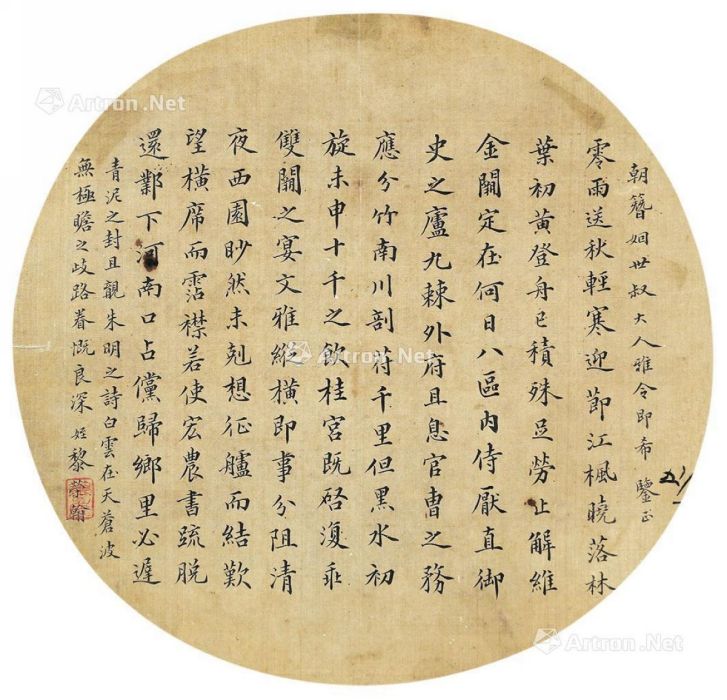 朝簪姻世叔大人雅令即希鑒正
零雨送秋輕寒迎節江楓曉落林
葉初黃登舟已積殊足勞止解維
金闕定在何日八區內侍厭直御
史之廬九棘外府且息官曹之務
應分竹南川剖苻千里但黑水初
旋未申十千之飲桂宮既啓復乖
雙闕之宴文雅縱橫即事分阻清
夜西園眇然未剋想征艫而結歎
望橫席而霑襟若使宏農書疏脫
還鄴下河南口占儻歸鄉里必遲
青泥之封且覯朱明之詩白雲在天蒼波
無極瞻之歧路眷慨良深 姪黎榮翰
Artron.Net
Artron.Net
Artron.Net